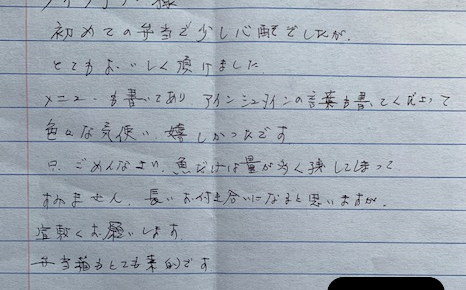 様
初めての弁当で少し心配でしたが、
とてもおいしく頂けました。
メニューも書いてあり アインシュタインの言葉も書いてくださって
色々な気使い 嬉しかったです
只 ごめんなさい、魚だけは量が多く残してしまって
すみません、長いお付き合いになると思いますが、
宜敷くお願いします。
弁当箱もとても素的です